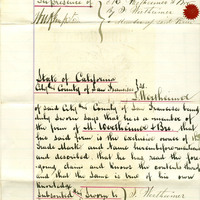 in presence of
State of California
City & County of San Francisco } ss
J. Wertheimer
of said City & County of San Francisco being
duly sworn says that he is a member
of the firm of M. Wertheimer & Bro. that
said firm is the exclusive owner of the
Trade Mark and name hereinbefore
and described, that he has read the fore-
going claim and knows the contents thereof
and that the same is true of his own
knowledge
Subscribed & Sworn to } J. Wertheimer